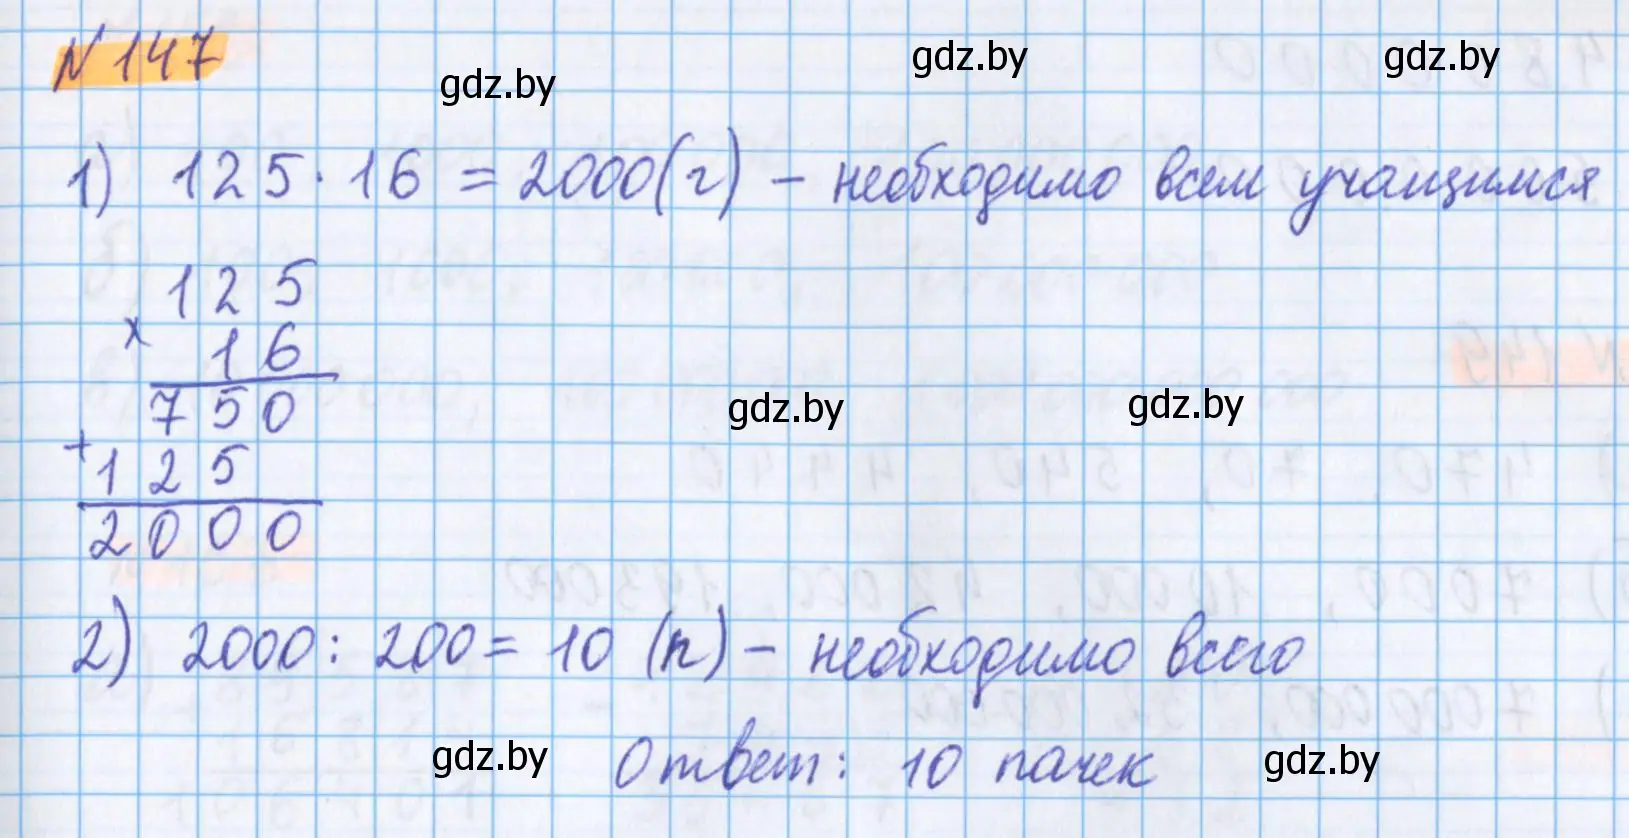 №147
gdz.by
gdz.by
gdz.by
1) 125 · 16 = 2000 (г) – необходимо всем учащимся
125
× 16
750
+ 125
2000
gdz.by
gdz.by
2) 2000 : 200 = 10 (п) – необходимо всего
Ответ: 10 пачек
gdz.by
gdz.by